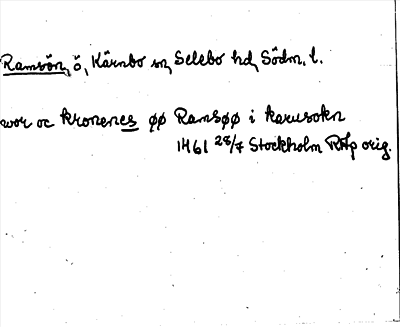 Ramsön, ö, Kärnbo sn, Selebo hd, Södm. l.
wor oc kronenes øø Ramsøø i karusokn
1461 28/7 Stockholm RAp orig.